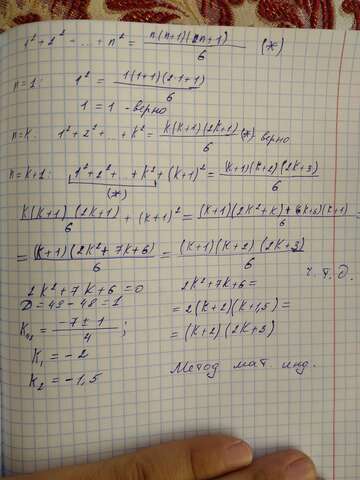 1² + 2² + ... + n² = n(n+1)(2n+1)/6 (*)
n=1: 1² = 1(1+1)(2·1+1)/6
1 = 1 - верно
n=k: 1² + 2² + ... + k² = k(k+1)(2k+1)/6 (*) верно
n=k+1: 1² + 2² + ... + k² + (k+1)² = (k+1)(k+2)(2k+3)/6
(*)
k(k+1)(2k+1)/6 + (k+1)² = (k+1)(2k²+k+6k+6)/6 =
= (k+1)(2k²+7k+6)/6 = (k+1)(k+2)(2k+3)/6
ч.т.д.
2k²+7k+6=0
D = 49 - 48 = 1
k₁,₂ = (-7±1)/4 ;
k₁ = -2
k₂ = -1,5
2k²+7k+6 =
= 2(k+2)(k+1,5) =
= (k+2)(2k+3)
Метод мат. инд.